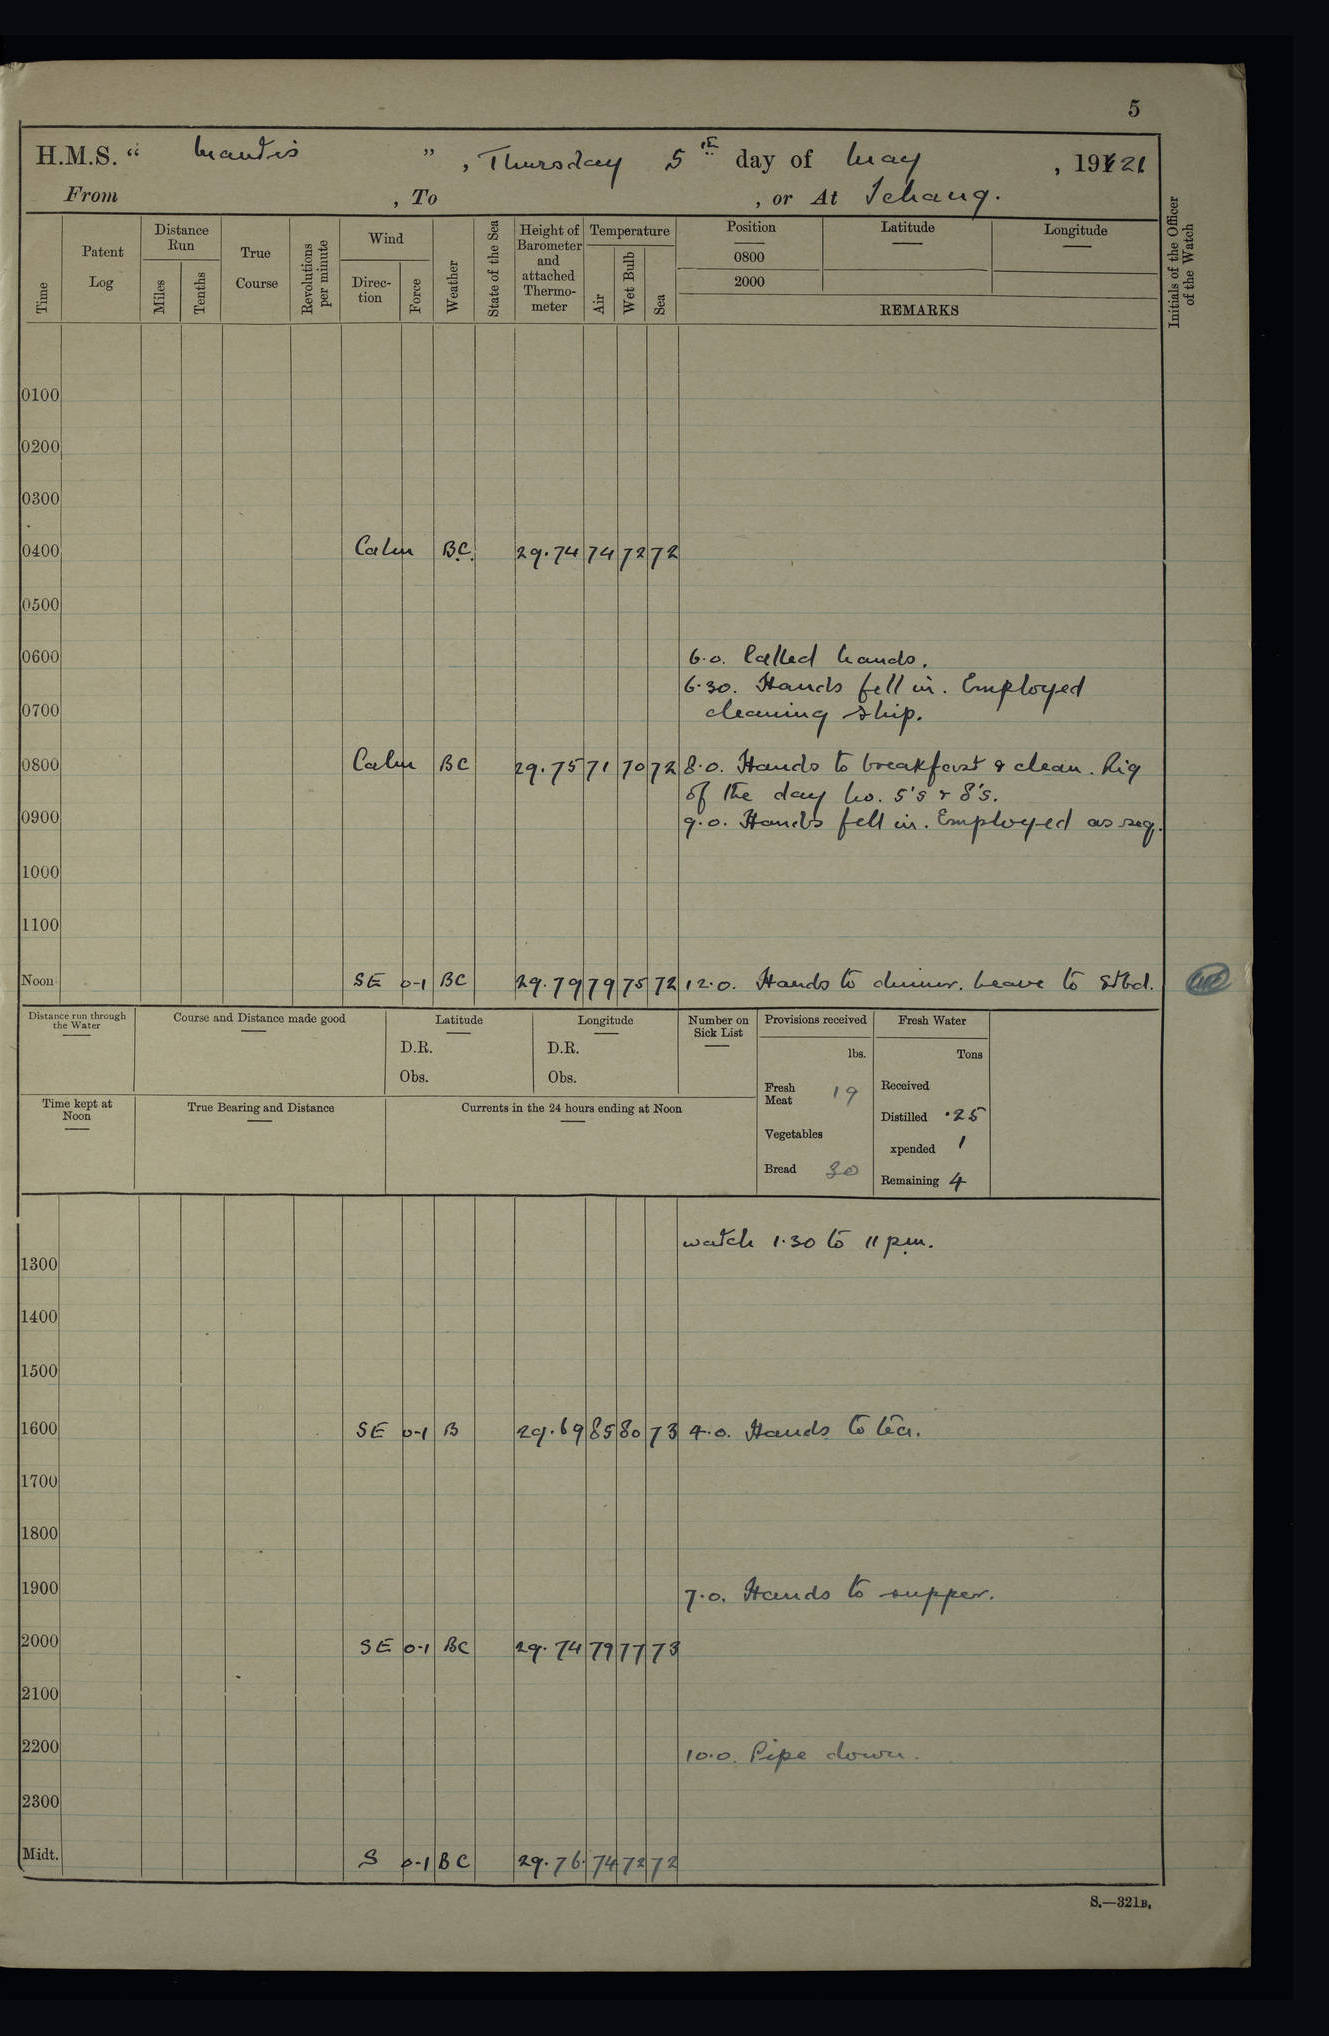 5
H.M.S. " Mantis ", Thursday 5th day of May, 1921
From , To , or At Ichang.
Time
Patent Log
Distance Run
Miles
Tenths
True Course
Revolutions per minute
Wind
Direc-tion
Force
Weather
State of the Sea
Height of Barometer and attached Thermo-meter
Temperature
Air
Wet Bulb
Sea
Position
0800
2000
Latitude
Longitude
REMARKS
Initials of the Officer of the Watch
0100
0200
0300
0400 Calm B.C. 29.74 74 72 72
0500
0600 6.0. Called hands.
6.30. Hands fell in. Employed
0700 cleaning ship.
0800 Calm BC 29.75 71 70 72 8.0. Hands to breakfast & clean. Rig
of the day No. 5's & 8's.
0900 9.0. Hands fell in. Employed as req.
1000
1100
Noon SE 0-1 BC 29.79 79 75 72 12.0. Hands to dinner. Leave to Stbd.
Distance run through the Water
Course and Distance made good
Latitude
D.R.
Obs.
Longitude
D.R.
Obs.
Number on Sick List
Provisions received
lbs.
Fresh Meat 19
Vegetables
Bread 30
Fresh Water
Tons
Received
Distilled .25
xpended 1
Remaining 4
Time kept at Noon
True Bearing and Distance
Currents in the 24 hours ending at Noon
watch 1.30 to 11 p.m.
1300
1400
1500
1600 SE 0-1 B 29.69 85 80 73 4.0. Hands to tea.
1700
1800
1900 7.0. Hands to supper.
2000 SE 0-1 BC 29.74 79 77 73
2100
2200 10.0. Pipe down.
2300
Midt. S 0-1 BC 29.76 74 72 72
S.—321B.